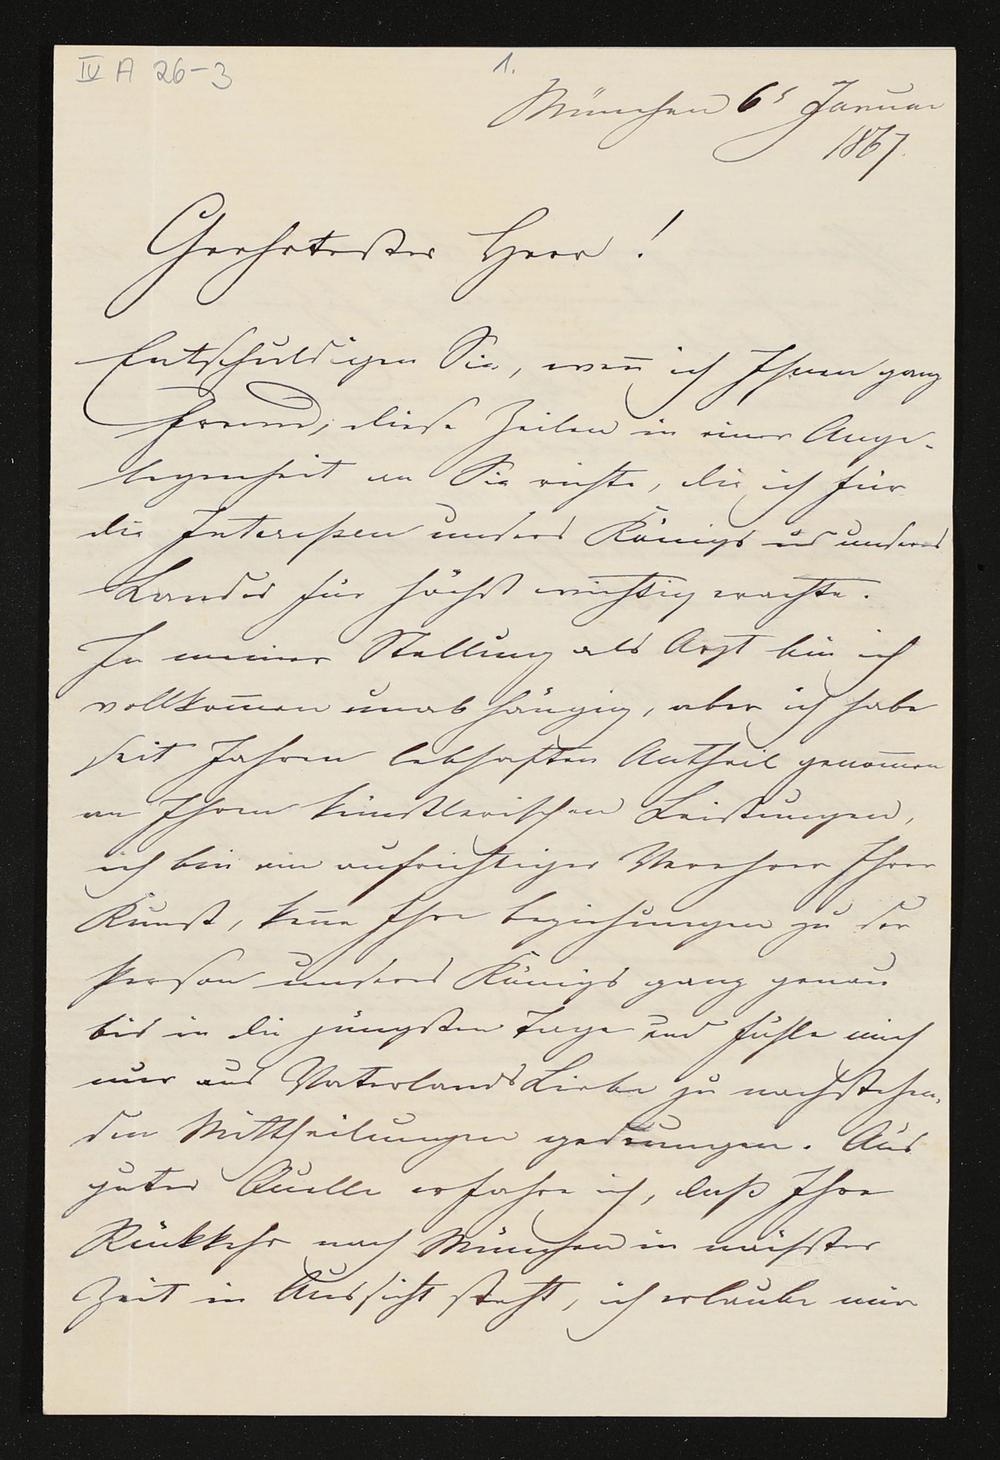 IV A 26-3
1.
München 6t Januar
1867.
Geehrtester Herr!
Entschuldigen Sie, weñ ich Ihnen ganz
Fremd, diese Zeilen in einer Ange-
legenheit an Sie richte, die ich für
die Interessen unsers Königs und unseres
Landes für höchst wichtig erachte.
In meiner Stellung als Arzt bin ich
vollkom̅en unabhängig, aber ich habe
seit Jahren lebhaften Antheil genom̅en
an Ihren künstlerischen Leistungen,
ich bin ein aufrichtiger Verehrer Ihrer
Kunst, keñe Ihre Beziehungen zu der
Person unseres Königs ganz genau
bis in die jüngsten Tage und fühle mich
nur aus Vaterlands Liebe zu nachstehen-
den Mittheilungen gedrungen. Aus
guter Quelle erfahre ich, daß Ihre
Rückkehr nach München in nächster
Zeit in Aussicht steht, ich erlaube mir